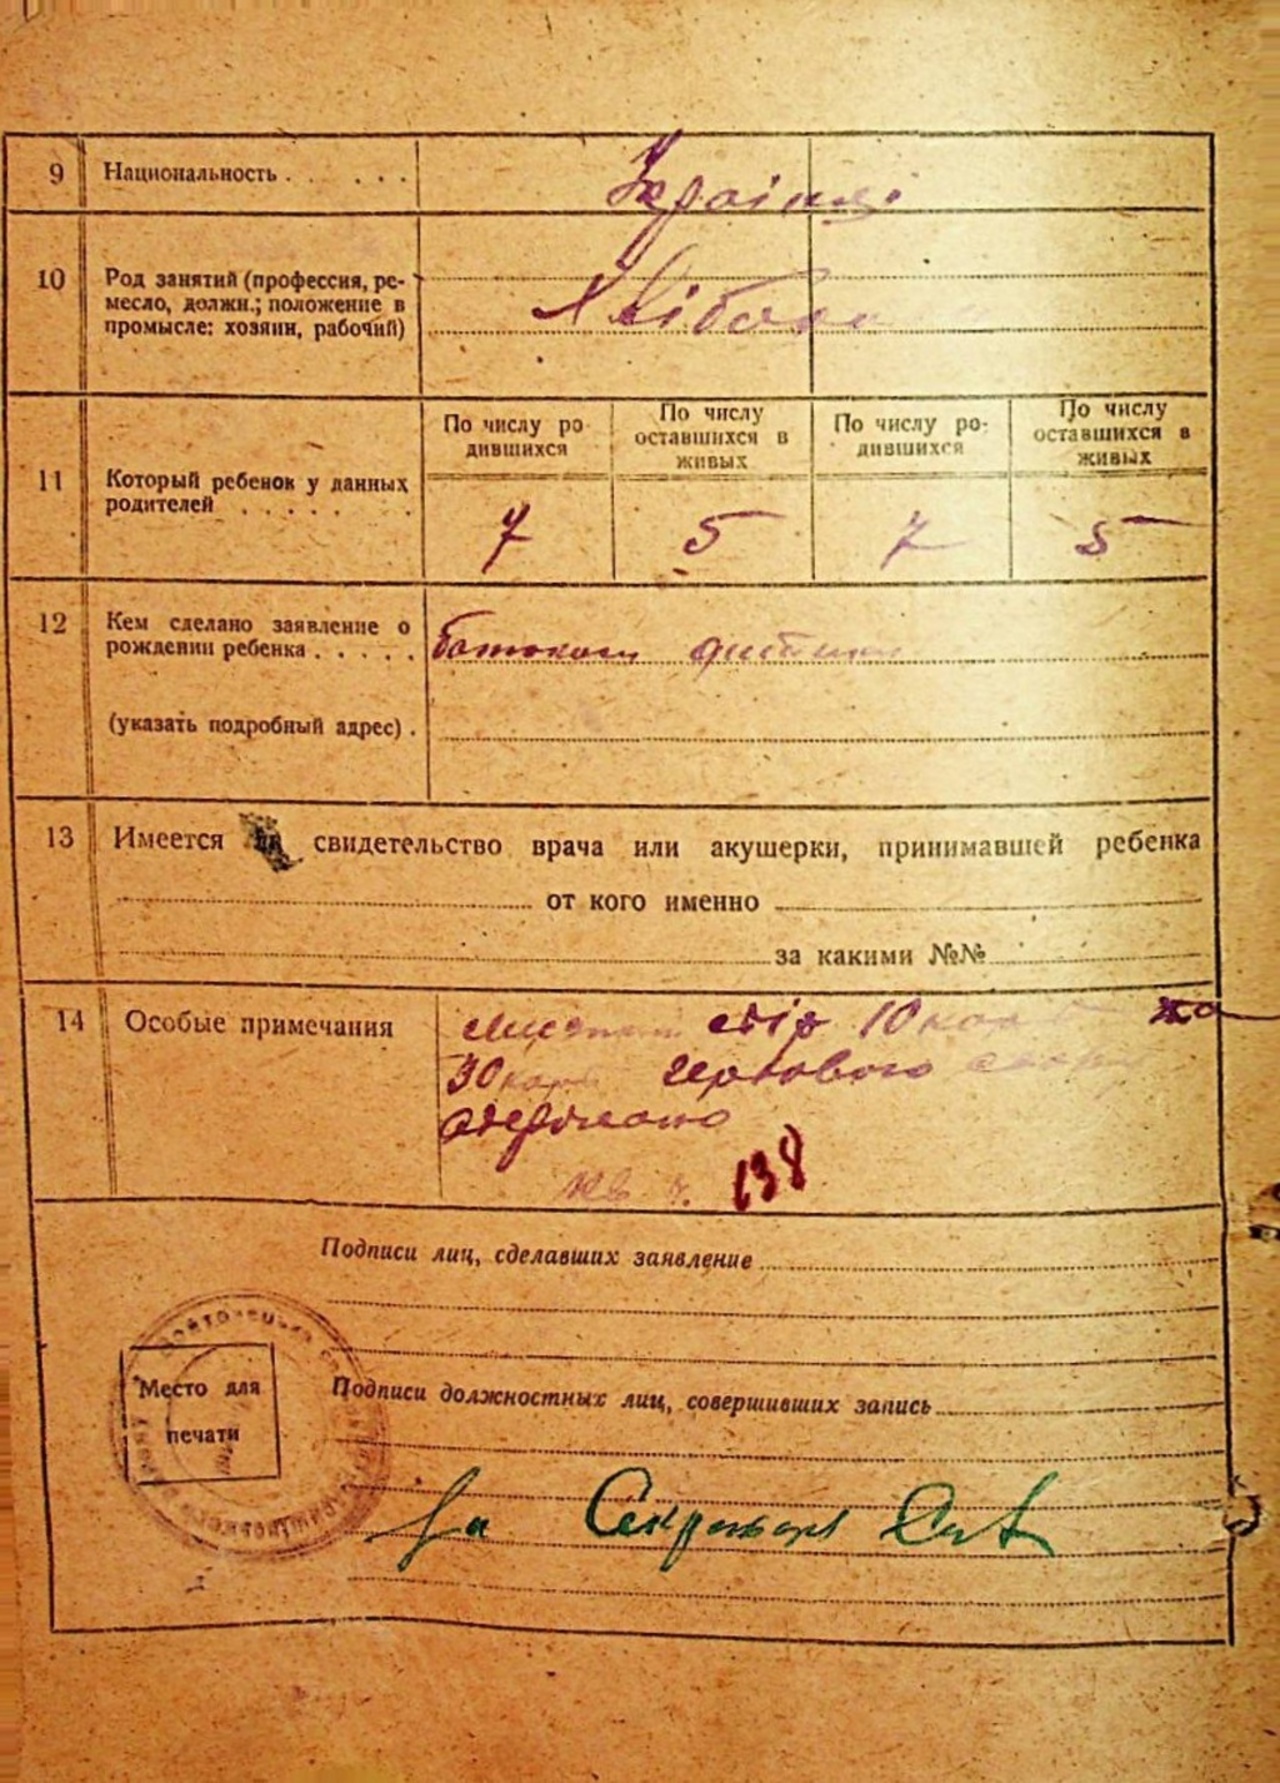 9 Национальность . . . . . Українці
10 Род занятий (профессия, ре-
месло, должн.; положение в
промысле: хозяин, рабочий)
Хлібороб
По числу ро-
дившихся
По числу
оставшихся в
живых
По числу ро-
дившихся
По числу
оставшихся в
живых
11 Который ребенок у данных
родителей . . . . . .
7 5 7 5
12 Кем сделано заявление о
рождении ребенка . . . . . батьком дитини
(указать подробный адрес) .
13 Имеется свидетельство врача или акушерки, принимавшей ребенка
от кого именно
за какими №№
14 Особые примечания
збір 10 коп та
30 коп гербового
одержано
138
Подписи лиц, сделавших заявление
Место для
печати
Подписи должностных лиц, совершивших запись
За Секретаря